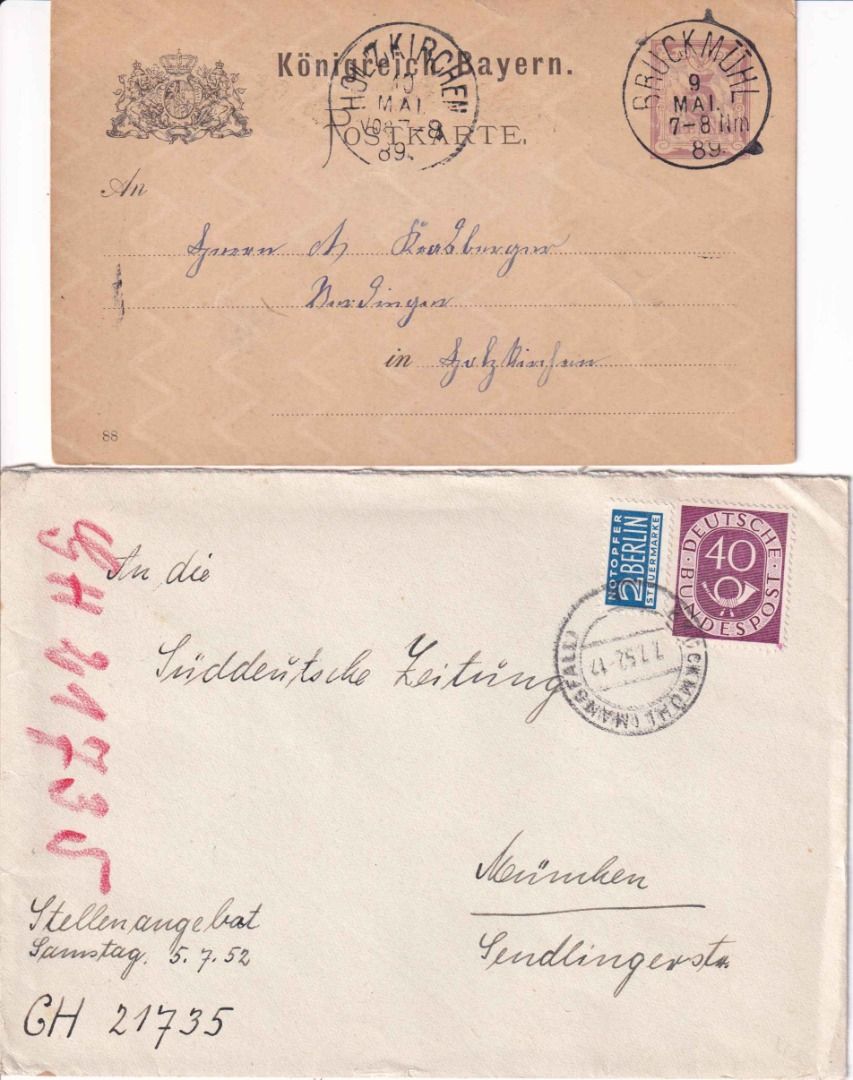 Königreich Bayern.
POSTKARTE.
HOLZKIRCHEN
10
MAI
VOR 7-8
89.
BRUCKMÜHL
9
MAI.
7-8 Nm
89.
An
Herrn
in Holzkirchen
88
NOTOPFER
2 BERLIN
STEUERMARKE
DEUTSCHE
40
BUNDESPOST
BRUCKMÜHL (MANGFALL)
7.7.52.-12
An die
Süddeutsche Zeitung
München
Sendlingerstr.
CH 21735
Stellenangebot
Samstag. 5.7.52
CH 21735